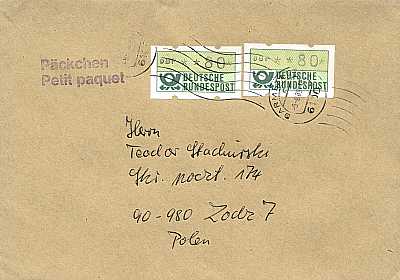 Päckchen
Petit paquet
DBP **80 DBP **80
DEUTSCHE BUNDESPOST DEUTSCHE BUNDESPOST
Herrn
Teodor Stachurski
Skr. poczt. 174
90-980 Łodź 7
Polen